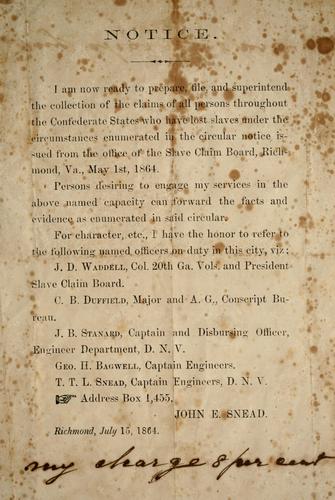 NOTICE.
I am now ready to prepare, file, and superintend
the collection of the claims of all persons throughout
the Confederate States who have lost slaves under the
circumstances enumerated in the circular notice is-
sued from the office of the Slave Claim Board, Rich-
mond, Va., May 1st, 1864.
Persons desiring to engage my services in the
above named capacity can forward the facts and
evidence as enumerated in said circular.
For character, etc., I have the honor to refer to
the following named officers on duty in this city, viz:
J. D. WADDELL, Col. 20th Ga. Vols. and President
Slave Claim Board.
C. B. DUFFIELD, Major and A. G., Conscript Bu-
reau.
J. B. STANARD, Captain and Disbursing Officer,
Engineer Department, D. N. V.
GEO. H. BAGWELL, Captain Engineers.
T. T. L. SNEAD, Captain Engineers, D. N. V.
☞ Address Box 1,455.
JOHN E. SNEAD.
Richmond, July 15, 1864.
my charge 8 per cent